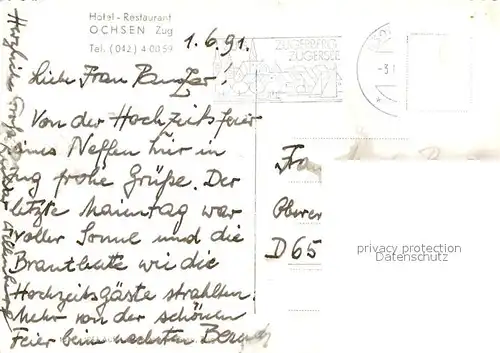 Hotel - Restaurant
OCHSEN Zug
Tel. (042) 4 00 59
1.6.91.
ZUGERBERG
ZUGERSEE
- 3.
Liebe Frau !
Von der Hochzeitsfeier
eines Neffen hier in
Zug frohe Grüße. Der
letzte Maientag war
voller Sonne und die
Brautleute wie die
Hochzeitsgäste strahlten.
Mehr von der schönen
Feier beim nächsten Besuch
Herzliche Grüße
Frau
D 65
privacy protection
Datenschutz